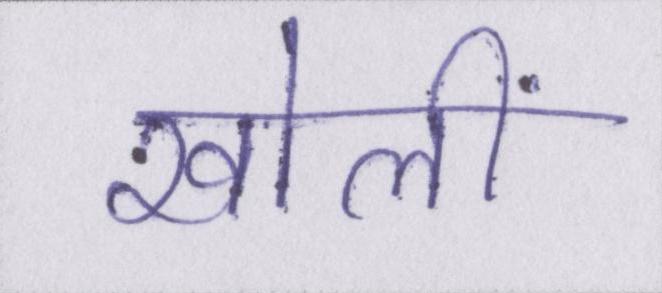 खोलीं